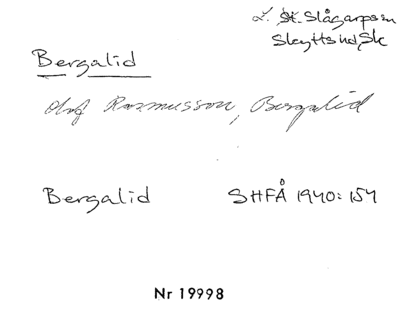 L. St. Slågarps sn
Skytts hd, Sk
Bergalid
Olof Rasmusson, Bergalid
Bergalid SHFÅ 1940:154
Nr 19998